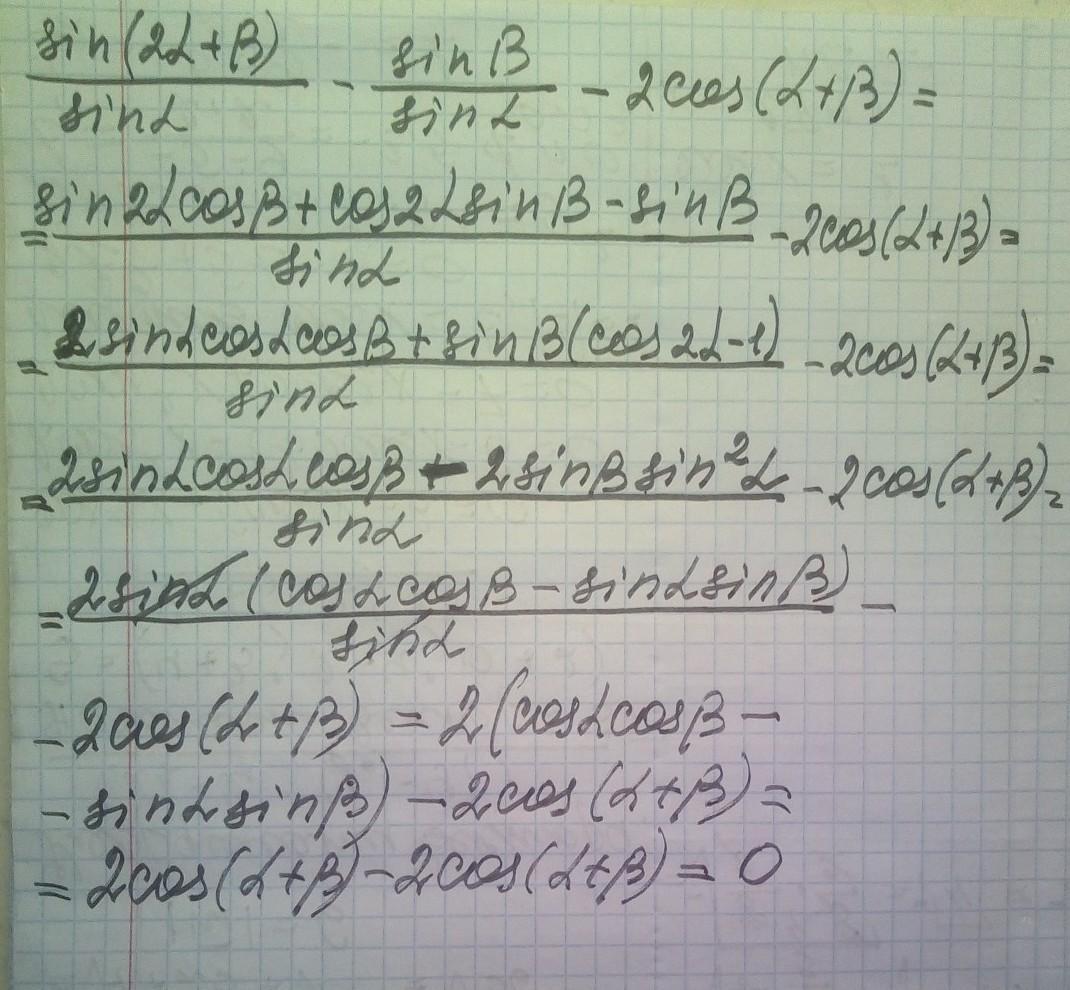 sin(2α+β)/sinα - sinβ/sinα - 2cos(α+β) =
= (sin2αcosβ + cos2αsinβ - sinβ)/sinα - 2cos(α+β) =
= (2sinαcosαcosβ + sinβ(cos2α-1))/sinα - 2cos(α+β) =
= (2sinαcosαcosβ - 2sinβsin²α)/sinα - 2cos(α+β) =
= 2sinα(cosαcosβ - sinαsinβ)/sinα -
- 2cos(α+β) = 2(cosαcosβ -
- sinαsinβ) - 2cos(α+β) =
= 2cos(α+β) - 2cos(α+β) = 0